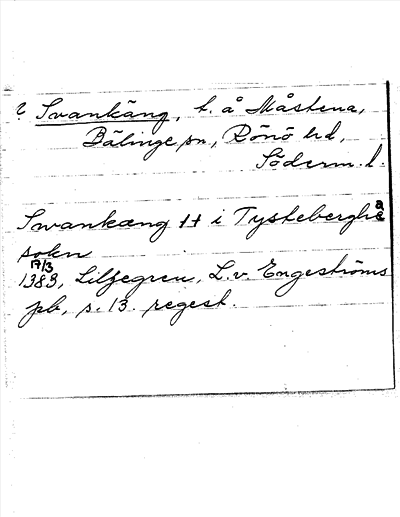 ? Svankäng, t. å Måstena,
Bälinge sn, Rönö hd,
Söderm. l.
Swankæng tt i Tyskeberghæ
sokn
17/3
1383, Liljegren, L. v. Engeströms
pb, s. 13. regest.